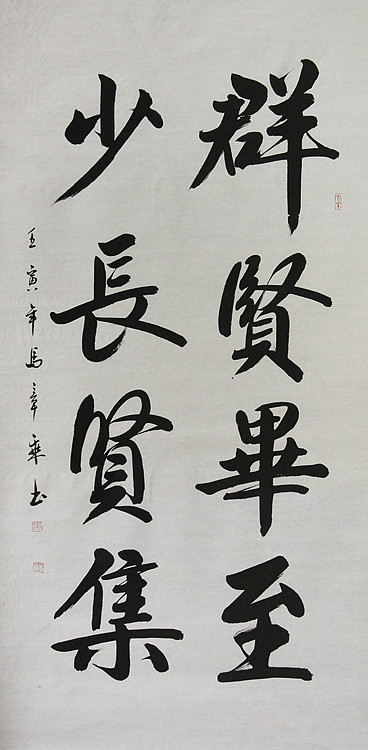 群賢畢至
少長賢集
壬寅年馬章乘书